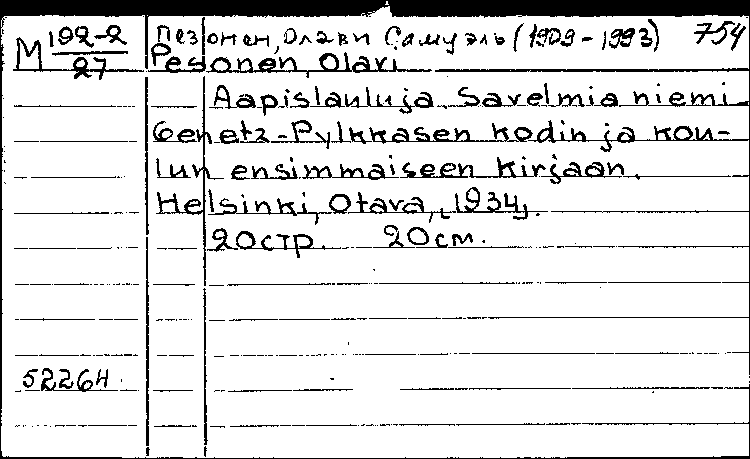 М 192-2/27 Пезонен, Олави Самуэль (1909-1993) 754
Pesonen, Olavi
Aapislauluja. Savelmia niemi-
Genetz-Pylkkasen kodin ja kou-
lun ensimmaiseen kirjaan.
Helsinki, Otava, [1934].
20 стр. 20 см.
52264